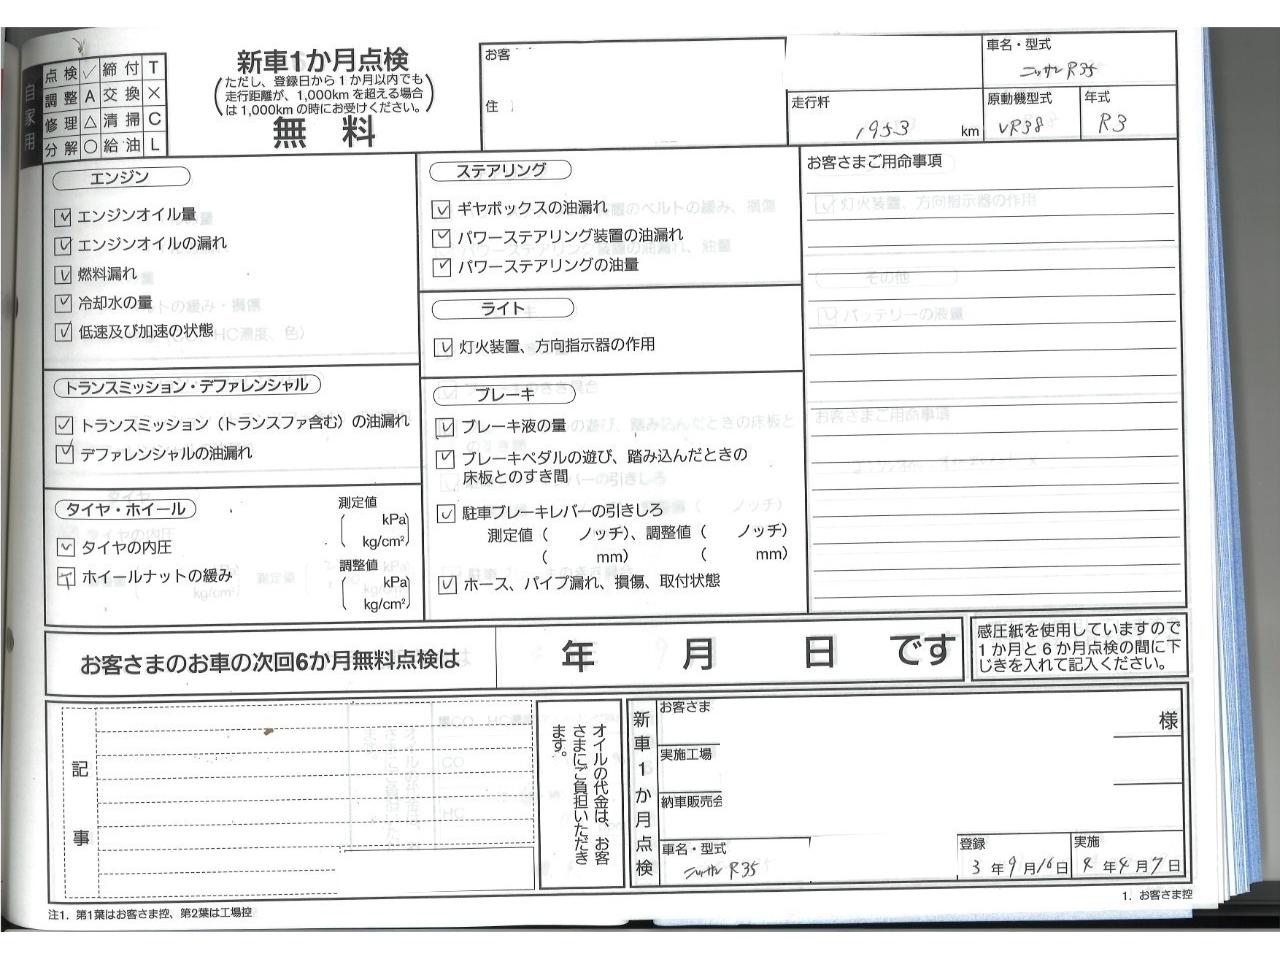 自家用
点検 ✓ 締付 T
調整 A 交換 ×
修理 △ 清掃 C
分解 ○ 給油 L
新車1か月点検
(ただし、登録日から1か月以内でも
走行距離が、1,000kmを超える場合
は1,000kmの時にお受けください。)
無料
お客
住
車名・型式
ニッサン R35
走行粁
1953 km
原動機型式
VR38
年式
R3
エンジン
エンジンオイル量
エンジンオイルの漏れ
燃料漏れ
冷却水の量
低速及び加速の状態
トランスミッション・デファレンシャル
トランスミッション(トランスファ含む)の油漏れ
デファレンシャルの油漏れ
タイヤ・ホイール
タイヤの内圧
ホイールナットの緩み
測定値
( kPa
kg/cm²)
調整値
( kPa
kg/cm²)
ステアリング
ギヤボックスの油漏れ
パワーステアリング装置の油漏れ
パワーステアリングの油量
ライト
灯火装置、方向指示器の作用
ブレーキ
ブレーキ液の量
ブレーキペダルの遊び、踏み込んだときの
床板とのすき間
駐車ブレーキレバーの引きしろ
測定値( ノッチ)、調整値( ノッチ)
( mm) ( mm)
ホース、パイプ漏れ、損傷、取付状態
お客さまご用命事項
灯火装置、方向指示器の作用
その他
バッテリーの液量
お客さまご用命事項
お客さまのお車の次回6か月無料点検は 年 月 日 です
感圧紙を使用していますので
1か月と6か月点検の間に下
じきを入れて記入ください。
記事
オイルの代金は、お客
さまにご負担いただき
ます。
新車1か月点検
お客さま 様
実施工場
納車販売会
車名・型式
ニッサン R35
登録
3年9月16日
実施
4年4月7日
注1. 第1葉はお客さま控、第2葉は工場控
1. お客さま控